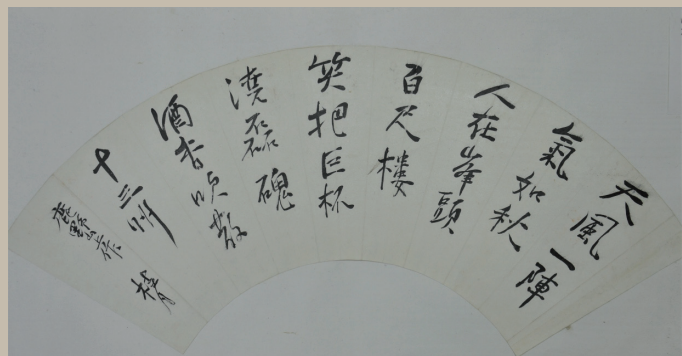 天風一陣
氣如秋
人在峯頭
百尺樓
笑把巨杯
澆磊磈
酒香吹散
十三州
作